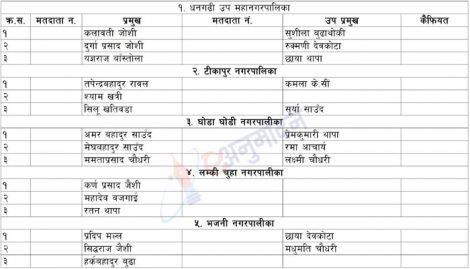 १. धनगढी उप महानगरपालिका
क्र.स. मतदाता नं. प्रमुख मतदाता नं. उप प्रमुख कैफियत
१ कलावती जोशी सुशीला बुढाथोकी
२ दुर्गा प्रसाद जोशी रुक्मणी देवकोटा
३ यज्ञराज बाँस्तोला छाया थापा
२. टीकापुर नगरपालिका
१ तपेन्द्रबहादुर रावल कमला के.सी
२ श्याम खत्री
३ सिलु खतिवडा सूर्या साउंद
३. घोडा घोडी नगरपालीका
१ अमर बहादुर साउंद प्रेमकुमारी थापा
२ मेघबहादुर साउंद रमा आचार्य
३ ममताप्रसाद चौधरी लक्ष्मी चौधरी
४. लम्की चुहा नगरपालिका
१ कर्ण प्रसाद जैशी
२ महादेव वजगाई
३ रतन थापा
५. भजनी नगरपालिका
१ प्रदिप मल्ल छाया देवकोटा
२ सिद्धराज जैशी मधुमति चौधरी
३ हर्कबहादुर बुढा
अनुमोदन